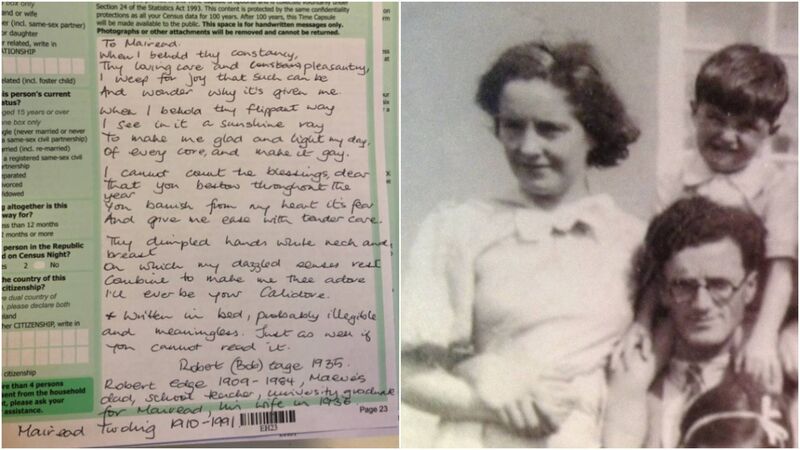 Section 24 of the Statistics Act 1993. This content is protected by the same confidentiality
protections as all your Census data for 100 years. After 100 years, this Time Capsule
will be made available to the public. This space is for handwritten messages only.
Photographs or other attachments will be removed and cannot be returned.
and or wife
er (incl. same-sex partner)
or daughter
r related, write in
ATIONSHIP
elated (incl. foster child)
is person's current
tatus?
ged 15 years or over
ne box only
gle (never married or never
a same-sex civil partnership)
rried (incl. re-married)
a registered same-sex civil
rtnership
eparated
ivorced
idowed
g altogether is this
way for?
ess than 12 months
2 months or more
person in the Republic
d on Census Night?
es 2 No
the country of this
citizenship?
e dual country of
, please declare both
eland
her CITIZENSHIP, write in
citizenship
re than 4 persons
ent from the household
t, please ask your
assistance.
To Mairead.
When I behold thy constancy,
Thy loving care and pleasantry,
I weep for joy that such can be
And wonder why it's given me.
When I behold thy flippant way
I see in it a sunshine ray
To make me glad and light my day,
Of every care, and make it gay.
I cannot count the blessings, dear
That you bestow throughout the
year
You banish from my heart it's fear
And give me ease with tender care.
Thy dimpled hands white neck and
breast
On which my dazzled senses rest
Combine to make me thee adore
I'll ever be your Calidore.
* Written in bed, probably illegible
and meaningless. Just as well if
you cannot read it.
Robert (Bob) Edge 1935.
Robert Edge 1909-1984, Maeve's
dad, school teacher, university graduate
for Mairead, his wife in 1936
Page 23
Mairead 1910-1991
EH23